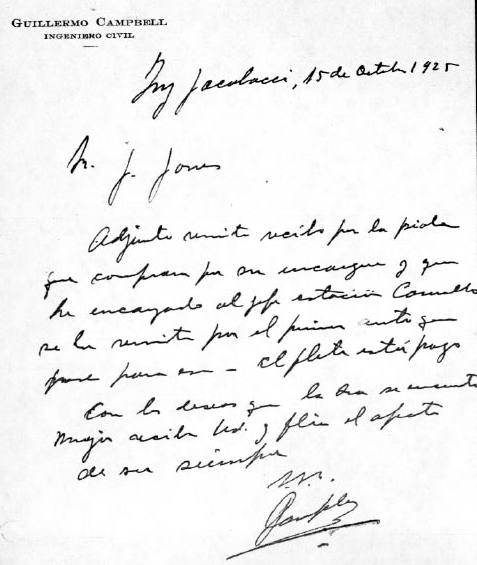 GUILLERMO CAMPBELL
INGENIERO CIVIL
Ing Jacobacci, 15 de Octubre 1925
Sr. J. Jones
Adjunto remito recibo por la piola
que compraron por su encargue y que
he encargado al jefe estación Comallo
se la remita por el primer auto que
pase para esa – el flete está pago
Con los deseos que la Sra se encuentre
mejor reciba Ud. y flia el afecto
de su siempre
Campbell